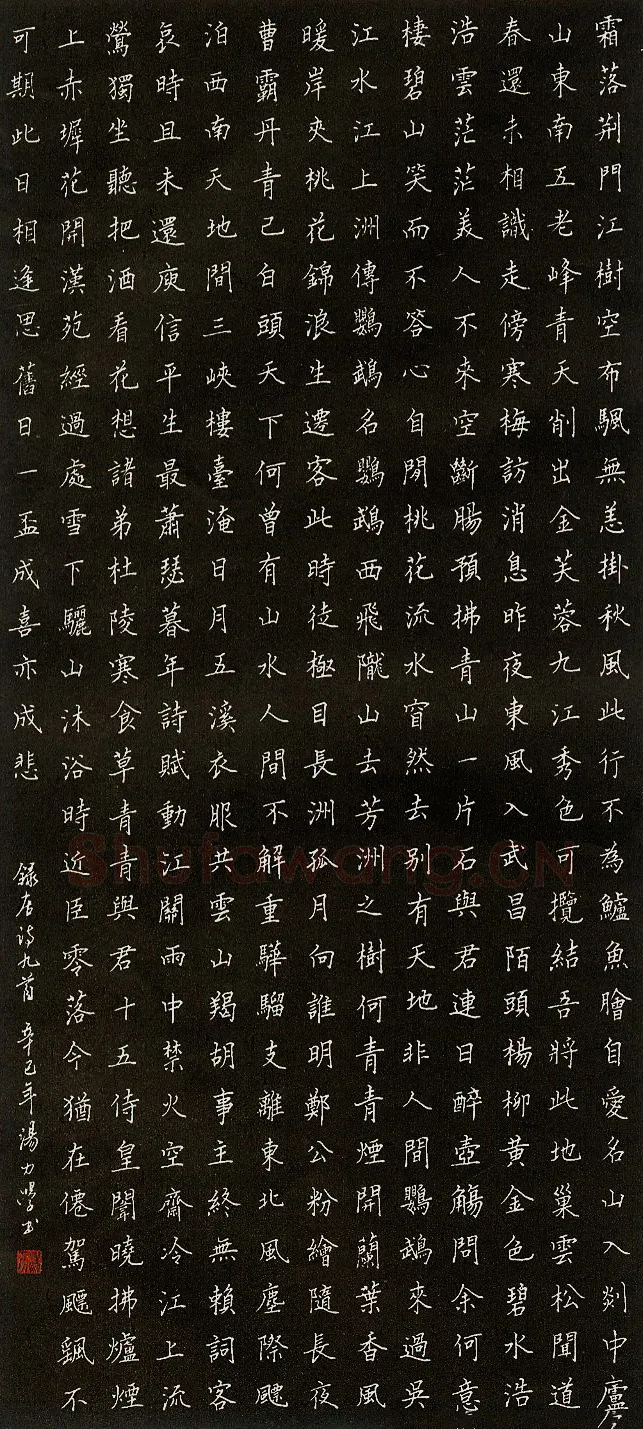 霜落荆門江樹空布颿無恙掛秋風此行不為鱸魚膾自愛名山入剡中廬
山東南五老峰青天削出金芙蓉九江秀色可攬結吾將此地巢雲松聞道
春還未相識走傍寒梅訪消息昨夜東風入武昌陌頭楊柳黃金色碧水浩
浩雲茫茫美人不來空斷腸預拂青山一片石與君連日醉壺觴問余何意
棲碧山笑而不答心自閒桃花流水窅然去别有天地非人間鸚鵡來過吳
江水江上洲傳鸚鵡名鸚鵡西飛隴山去芳洲之樹何青青煙開蘭葉香風
暖岸夾桃花錦浪生遷客此時徒極目長洲孤月向誰明鄭公粉繪隨長夜
曹霸丹青已白頭天下何曾有山水人間不解重驊騮支離東北風塵際飄
泊西南天地間三峽樓臺淹日月五溪衣服共雲山羯胡事主終無賴詞客
哀時且未還庾信平生最蕭瑟暮年詩賦動江關雨中禁火空齋冷江上流
鶯獨坐聽把酒看花想諸弟杜陵寒食草青青與君十五侍皇闈曉拂爐煙
上赤墀花開漢苑經過處雪下驪山沐浴時近臣零落今猶在僊駕飄颻不
可期此日相逢思舊日一盃成喜亦成悲
録唐詩九首 辛巳年湯力學書
Shufawang.CN